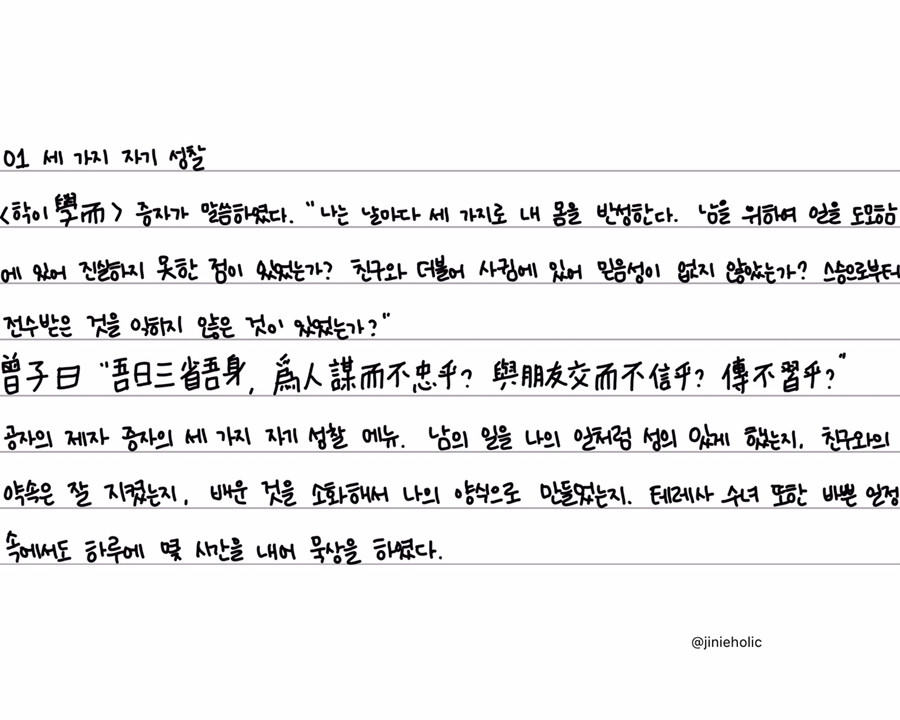 01 세 가지 자기 성찰
<학이 學而> 증자가 말씀하였다. "나는 날마다 세 가지로 내 몸을 반성한다. 남을 위하여 일을 도모함
에 있어 진실하지 못한 점이 있었는가? 친구와 더불어 사귐에 있어 믿음성이 없지 않았는가? 스승으로부터
전수받은 것을 익히지 않은 것이 있었는가?"
曾子曰 "吾日三省吾身, 爲人謀而不忠乎? 與朋友交而不信乎? 傳不習乎?"
공자의 제자 증자의 세 가지 자기 성찰 메뉴. 남의 일을 나의 일처럼 성의 있게 했는지, 친구와의
약속은 잘 지켰는지, 배운 것을 소화해서 나의 양식으로 만들었는지. 테레사 수녀 또한 바쁜 일정
속에서도 하루에 몇 시간을 내어 묵상을 하였다.
@jinieholic